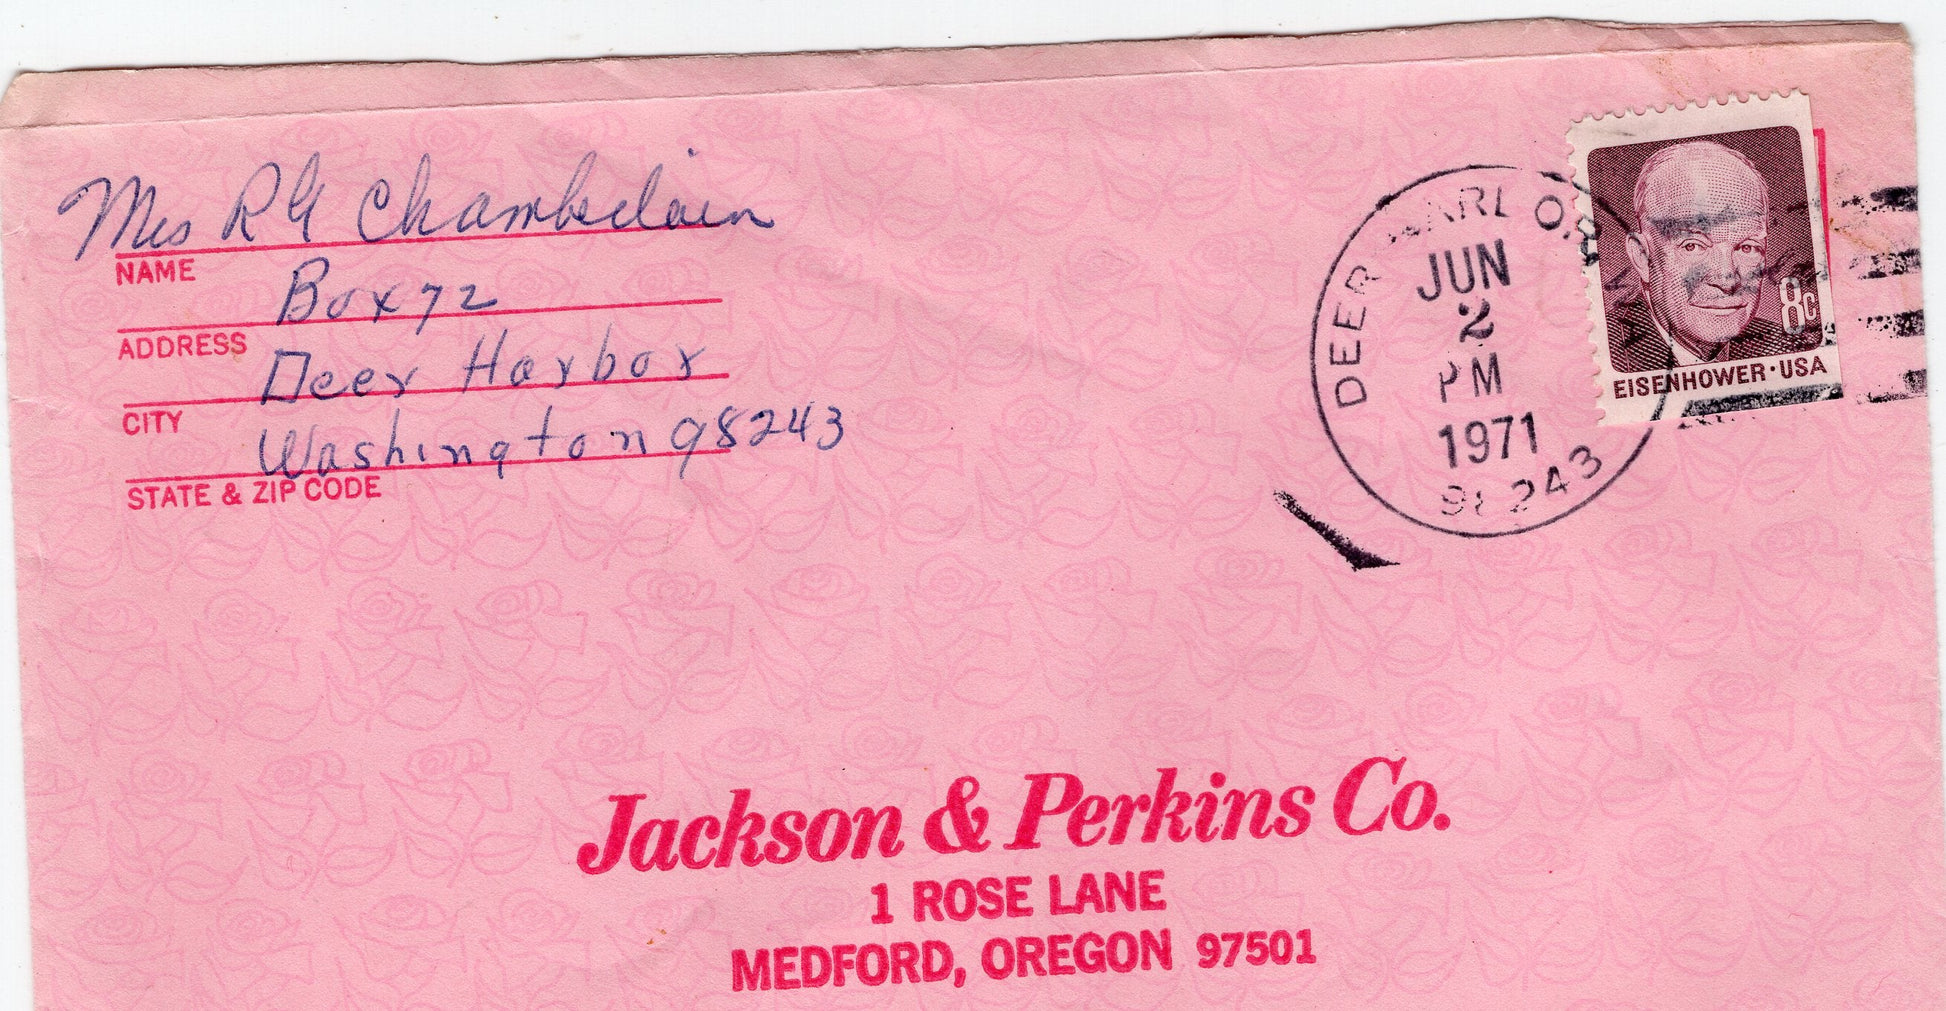 Mrs R G Chamberlain
NAME
Box 72
ADDRESS
Deer Harbor
CITY
Washington 98243
STATE & ZIP CODE
DEER HARBOR
JUN
2
PM
1971
98243
8c
EISENHOWER · USA
Jackson & Perkins Co.
1 ROSE LANE
MEDFORD, OREGON 97501